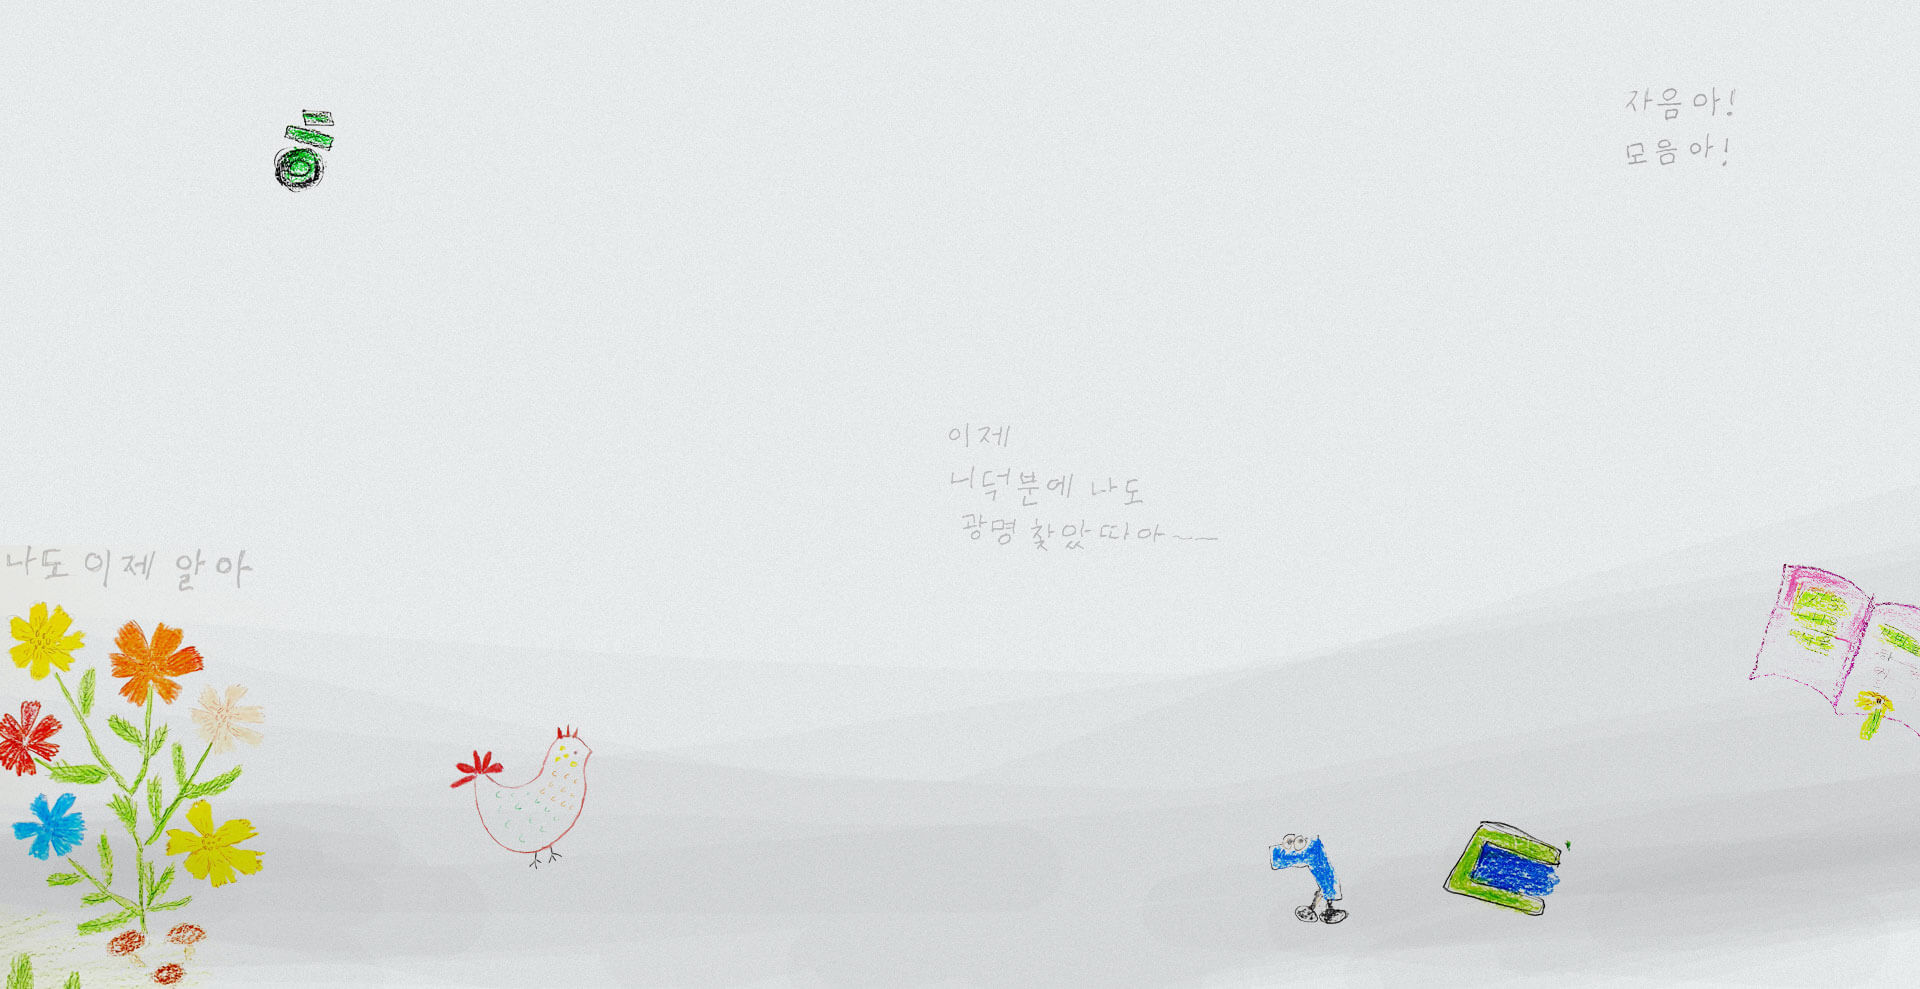 자음아!
모음아!
이제
니덕분에 나도
광명 찾았따아~~
나도 이제 알아
자음